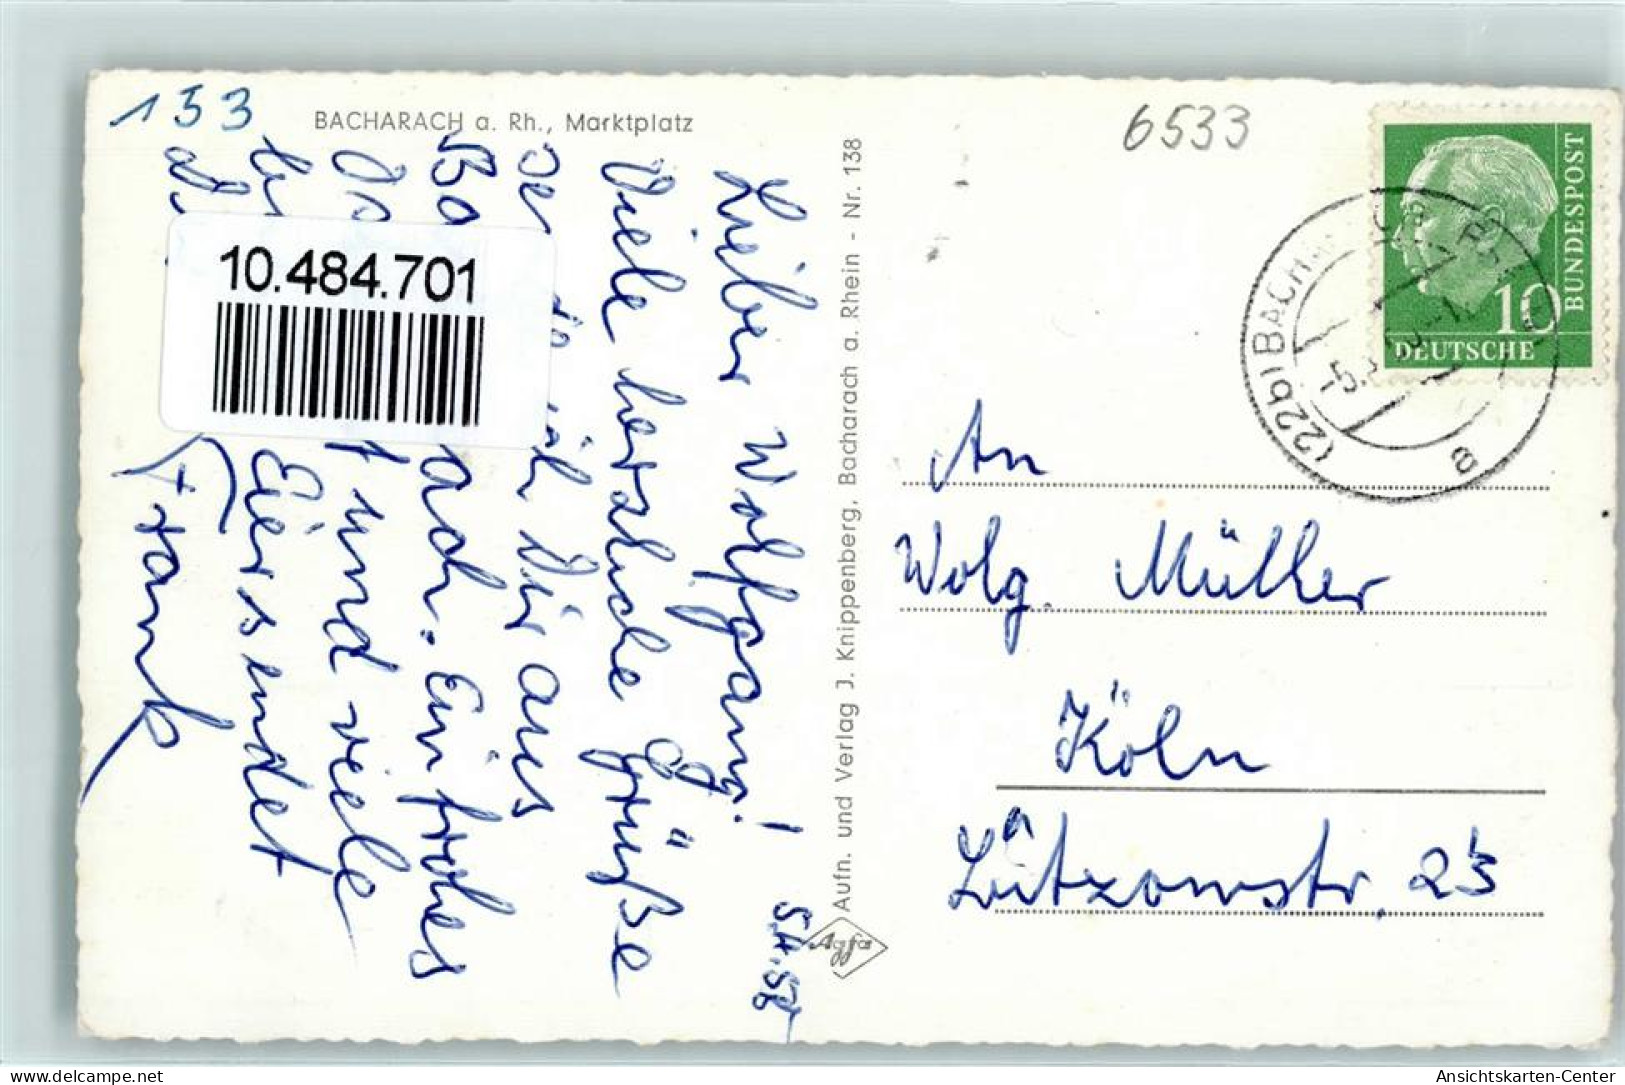 153
BACHARACH a. Rh., Marktplatz
6533
10.484.701
Lieber Wolfgang!
Viele herzliche Grüße
sende ich Dir aus
Ba ach. Ein frohes
Os t und viele
Eier sendet
Frank
5.4.58
Aufn. und Verlag J. Knippenberg, Bacharach a. Rhein - Nr. 138
Agfa
DEUTSCHE
BUNDESPOST
10
(22b) BACH
a
An
Wolg. Müller
Köln
Lützowstr. 23
Ansichtskarten-Center
delcampe.net